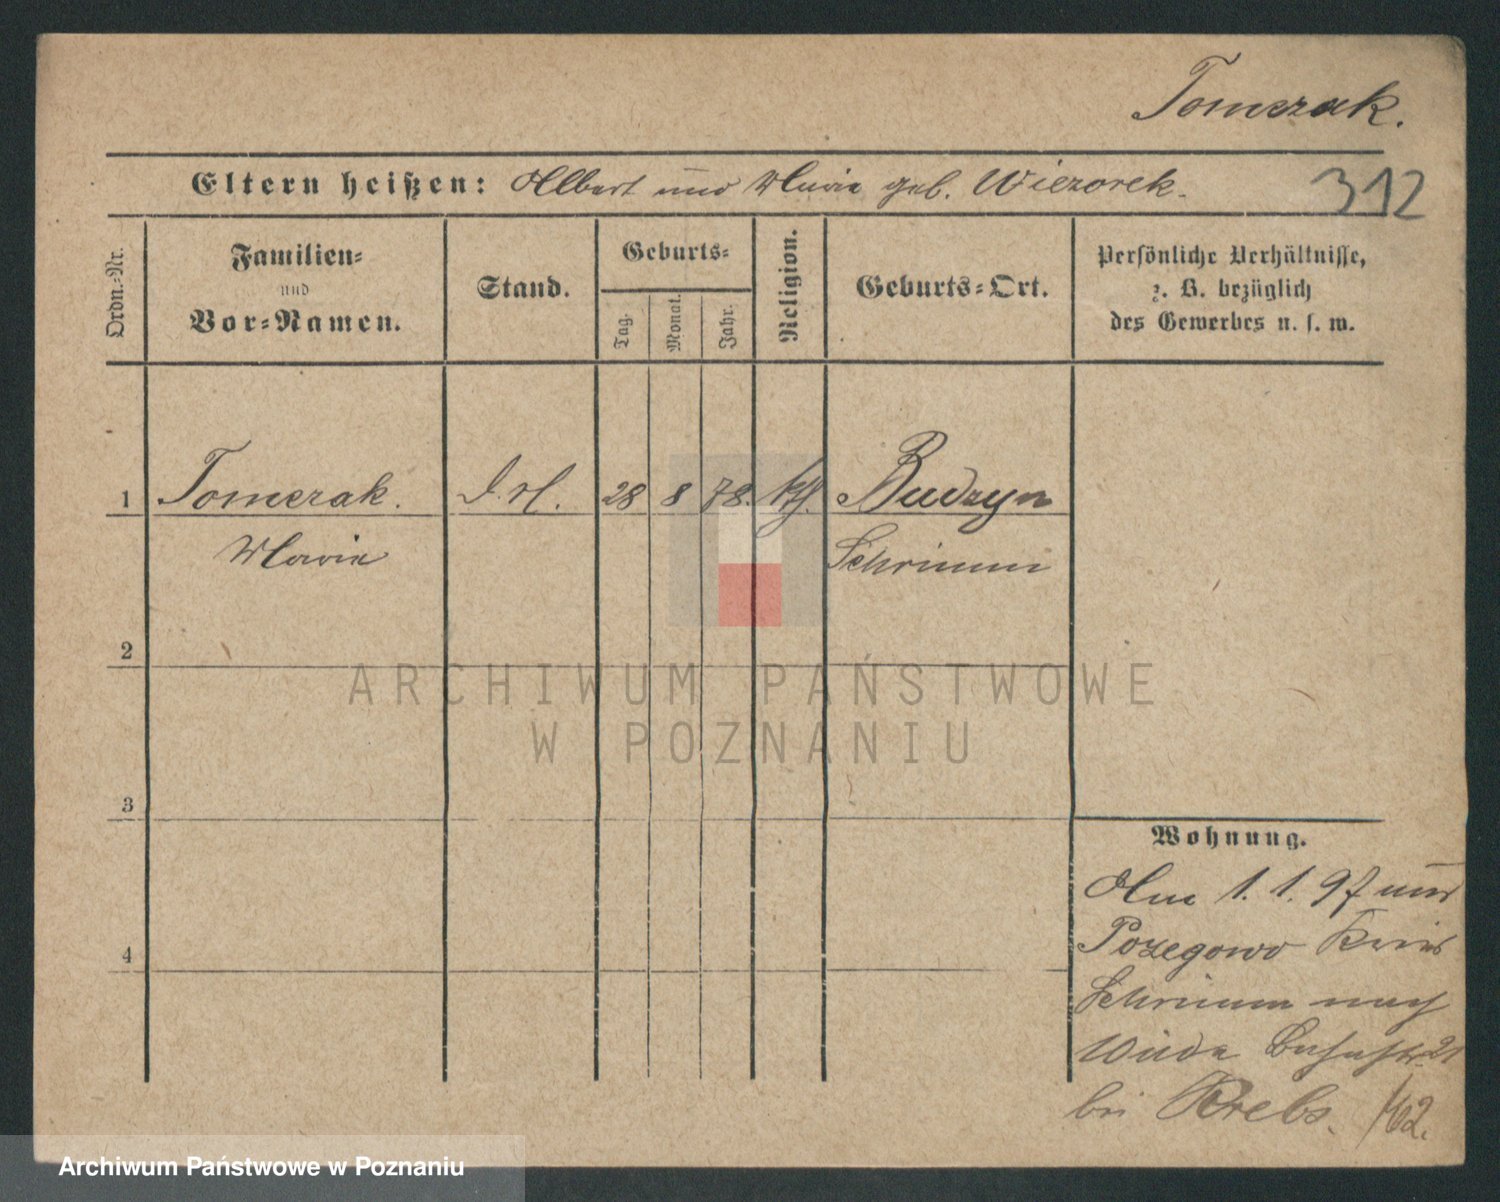 Tomerak.
Eltern heißen: Albert und Marie geb. Wiezorek.
312
Ordn.-Nr.
Familien-
und
Vor-Namen.
Stand.
Geburts-
Tag.
Monat.
Jahr.
Religion.
Geburts-Ort.
Persönliche Verhältnisse,
z. B. bezüglich
des Gewerbes u. s. w.
1 Tomerak. 28 8 78. kth. Budzyn
Marie Schrimm
2
ARCHIWUM PAŃSTWOWE
W POZNANIU
3
Wohnung.
Am 1. 1. 97 von
Pozegowo Kreis
4
Schrimm nach
Wilda 21
bei Krebs.
Archiwum Państwowe w Poznaniu